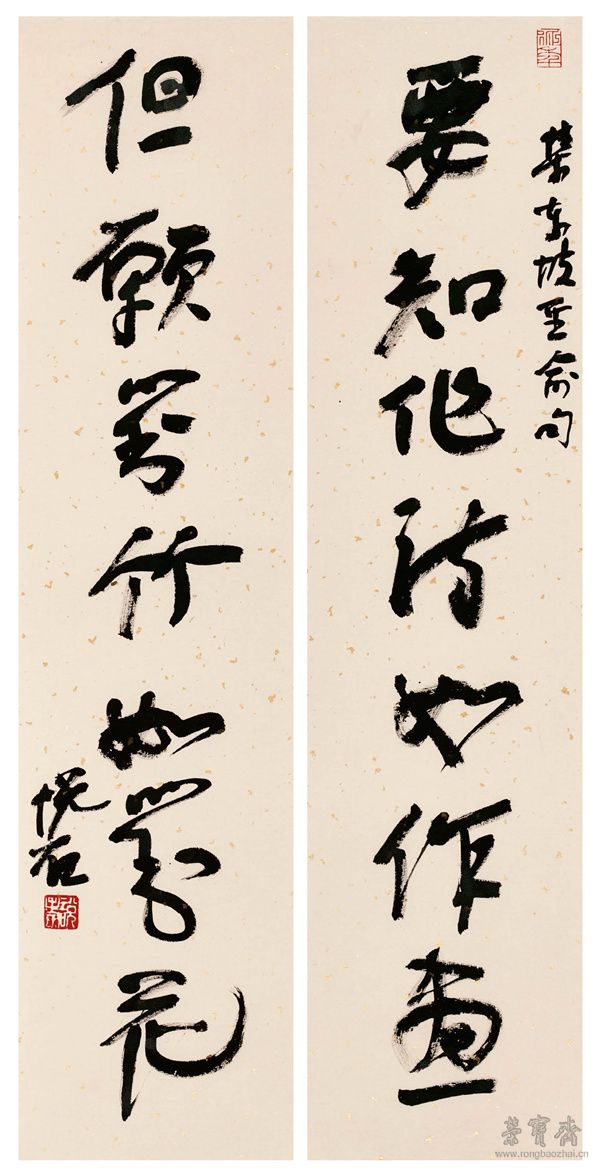 集東坡俞句
要知作詩如作畫
但願對竹如對花
悦石
榮寶齋
www.rongbaozhai.cn